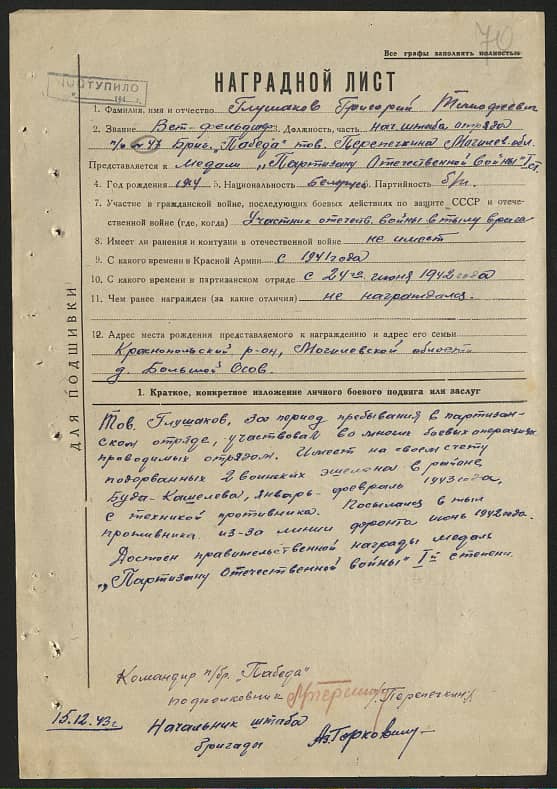 710
Все графы заполнять полностью
ПОСТУПИЛО
НАГРАДНОЙ ЛИСТ
1. Фамилия, имя и отчество Глушаков Григорий Тимофеевич
2. Звание Вет-фельдшер 3. Должность, часть нач. штаба отряда
п/о № 43 Бриг. "Победа" тов. Перепечкина Могилев. обл.
Представляется к медали "Партизану Отечественной Войны" I ст.
4. Год рождения 1914 5. Национальность Беларус 6. Партийность б/п.
7. Участие в гражданской войне, последующих боевых действиях по защите СССР и отече-
ственной войне (где, когда) Участник отечеств. войны в тылу врага
8. Имеет ли ранения и контузии в отечественной войне не имеет
9. С какого времени в Красной Армии с 1941 года
10. С какого времени в партизанском отряде с 24го июня 1942 года
11. Чем ранее награжден (за какие отличия) не награждался.
12. Адрес места рождения представляемого к награждению и адрес его семьи
Краснопольский р-он, Могилевской области
д. Большой Осов.
ДЛЯ ПОДШИВКИ
1. Краткое, конкретное изложение личного боевого подвига или заслуг
Тов. Глушаков, за период пребывания в партизан-
ском отряде, участвовал во многих боевых операциях
проводимых отрядом. Имеет на своем счету
подорванных 2 воинских эшелона в районе,
Буда-Кашелева, январь-февраль 1943 года,
с техникой противника. Посылался в тыл
противника из-за линии фронта июнь 1942 года.
Достоен правительственной награды медаль
"Партизану Отечественной войны" I й степени.
Командир п/бр. "Победа"
подполковник /Перепечкин/
15.12.43г Начальник штаба
бригады